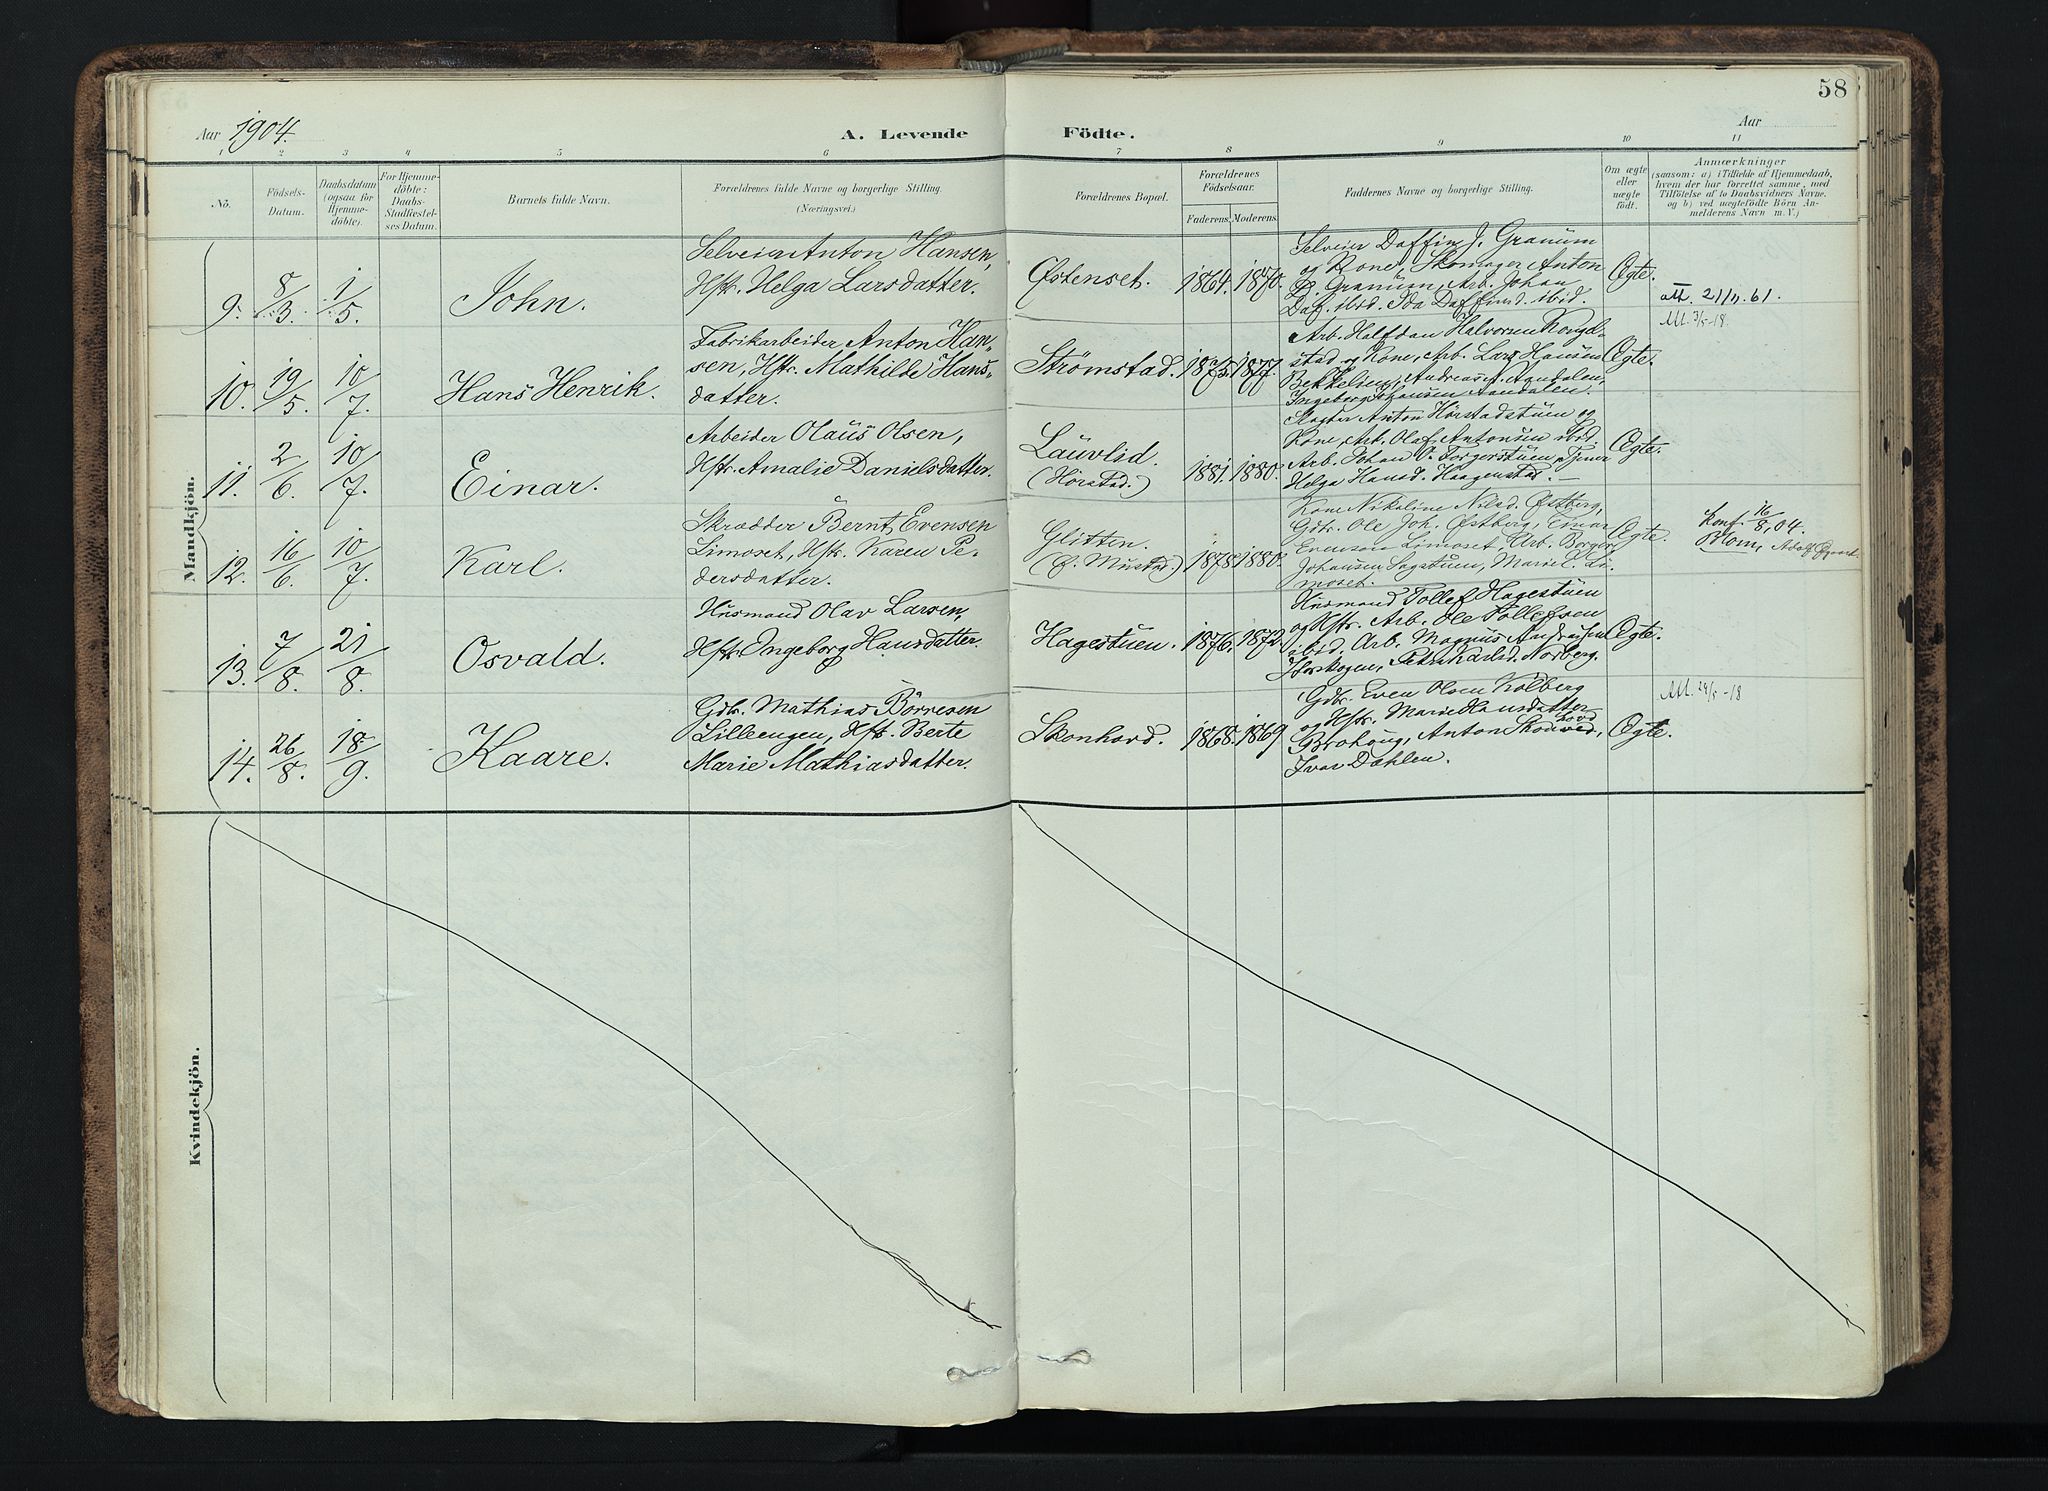 58
Aar 1904.
A. Levende Födte.
Aar
1 2 3 4 5 6 7 8 9 10 11
No.
Födsels-Datum.
Daabsdatum (ogsaa for Hjemme-döbte).
For Hjemme-döbte: Daabs-Stadfæstel-ses Datum.
Barnets fulde Navn.
Forældrenes fulde Navne og borgerlige Stilling.
(Næringsvei.)
Forældrenes Bopæl.
Forældrenes Födselsaar.
Faderens. Moderens.
Faddernes Navne og borgerlige Stilling.
Om ægte eller uægte födt.
Anmærkninger
(saasom: a) i Tilfælde af Hjemmedaab, hvem der har forrettet samme, med Tilföielse af to Daabsvidners Navne, og b) ved uægtefödte Börn Anmelderens Navn m. V.)
Mandkjön.
9. 8/3. 1/5. John.
Selveier Anton Hansen,
Hstr. Helga Larsdatter.
Østenset. 1864. 1870.
Selveier Daffin J. Granum
og Kone, Skomager Anton
D. Granum, Arb. Johan
Daf. ibid. Ida Daffinsd. ibid.
Ægte.
att. 21/11.61.
10. 19/5. 10/7. Hans Henrik.
Fabrikarbeider Anton Han-
sen, Hstr. Mathilde Hans-
datter.
Strømstad. 1875. 1877.
Arb. Halfdan Halvorsen Kongl-
stad og Kone, Arb. Lars Hansen
Bekkelien, Andreas
Ingeborg Johansen
Ægte.
Att. 3/5-18.
11. 2/6. 10/7. Einar.
Arbeider Olaus Olsen,
Hstr. Amalie Danielsdatter.
Lauvlid.
(Hørstad.) 1881. 1880.
Slagter Anton Hørstadstuen og
Kone, Arb. Olaf Antonsen ibid.
Arb. Johan O. Torgerstuen, Tjener
Helga Hansd. Haagenstad.
Ægte.
12. 16/6. 10/7. Karl.
Skrædder Bernt Evensen
Limoset, Hstr. Karen Pe-
dersdatter.
Glitten.
(Ø. Mustad.) 1878. 1880.
Kone Nikoline Nilsd. Østberg,
Gdbr. Ole Joh. Østberg, Einar
Evensen Limoset, Arb. Borger
Johansen Sagstuen, Marie L. Li-
moset.
Ægte.
Konf. 16/8,04.
Blom, Adolf
13. 7/8. 21/8. Osvald.
Husmand Olav Larsen,
Hstr. Ingeborg Hansdatter.
Hagestuen. 1876. 1872.
Husmand Tollef Hagestuen
og Hstr. Arb. Ole Tollefsen
ibid. Arb. Magnus Andreasen
Horskogen, Petra Karlsd. Norberg.
Ægte.
14. 26/8. 18/9. Kaare.
Gdbr. Mathias Børresen
Lilleengen, Hst. Berte
Marie Mathiasdatter.
Skonhord. 1868. 1869
Gdbr. Even Olsen Kolberg
og Hstr. Marie Hansdatter
Brohaug, Anton
Ivar Dæhlen.
Ægte.
Att. 29/5-18
Kvindekjön.